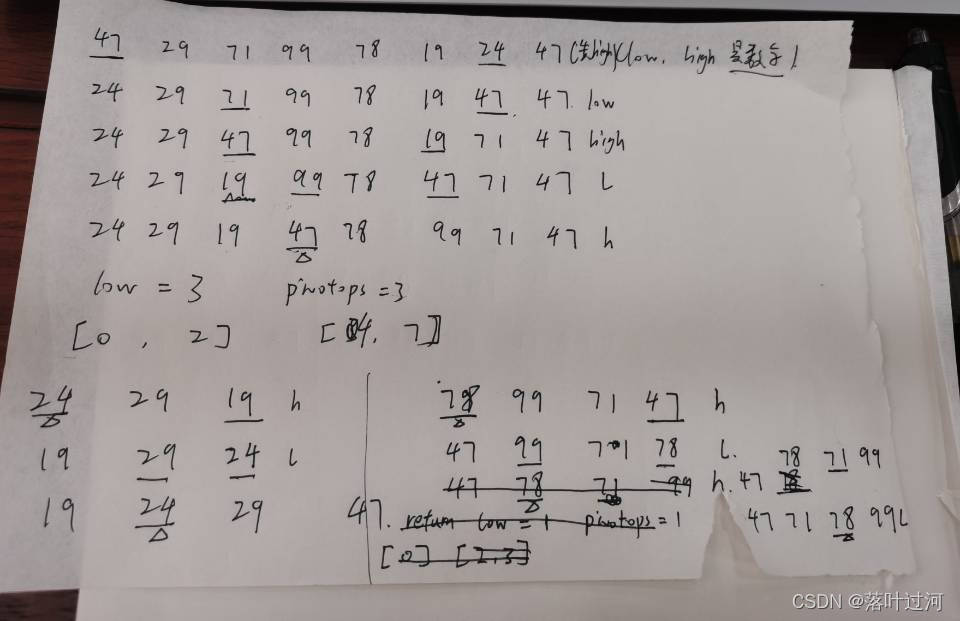 47 29 71 99 78 19 24 47 (先high)(low, high 是数字)
24 29 71 99 78 19 47 47. low
24 29 47 99 78 19 71 47 high
24 29 19 99 78 47 71 47 L
24 29 19 47 78 99 71 47 h
low = 3 pivotops = 3
[0, 2] [4, 7]
24 29 19 h
19 29 24 L
19 24 29
78 99 71 47 h
47 99 71 78 L.
47 78 71 99 h.
47. return low = 1 pivotops = 1
[0] [2,3]
78 71 99
47
47 71 78 99 L
CSDN @落叶过河